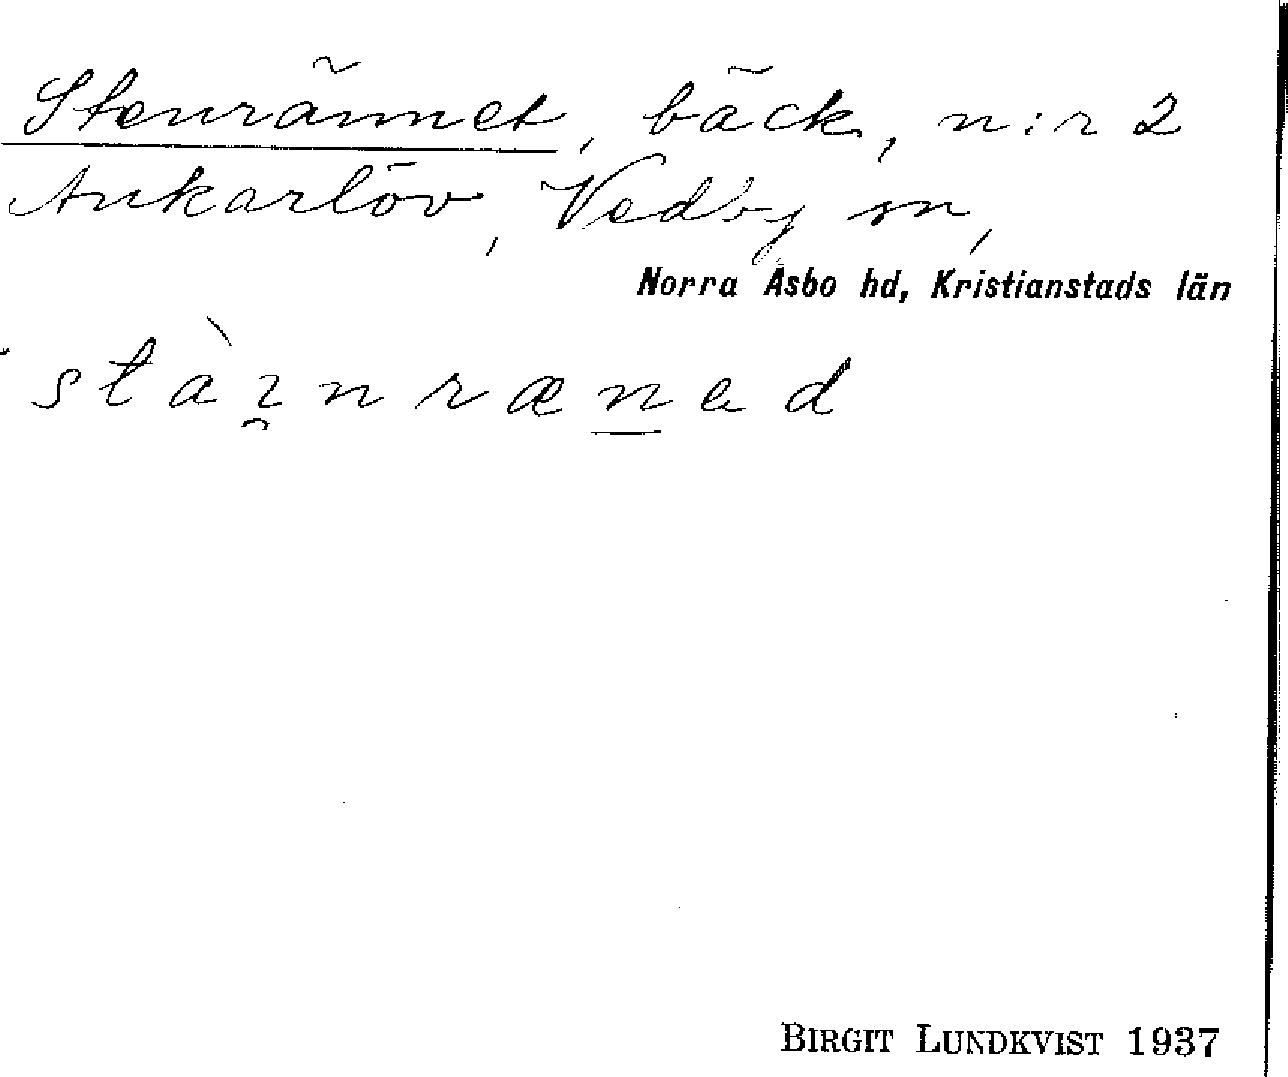 Stenrännet, bäck, n:r 2
Ankarlöv, Vedby sn,
Norra Åsbo hd, Kristianstads län
stàı̯nrænad
BIRGIT LUNDKVIST 1937